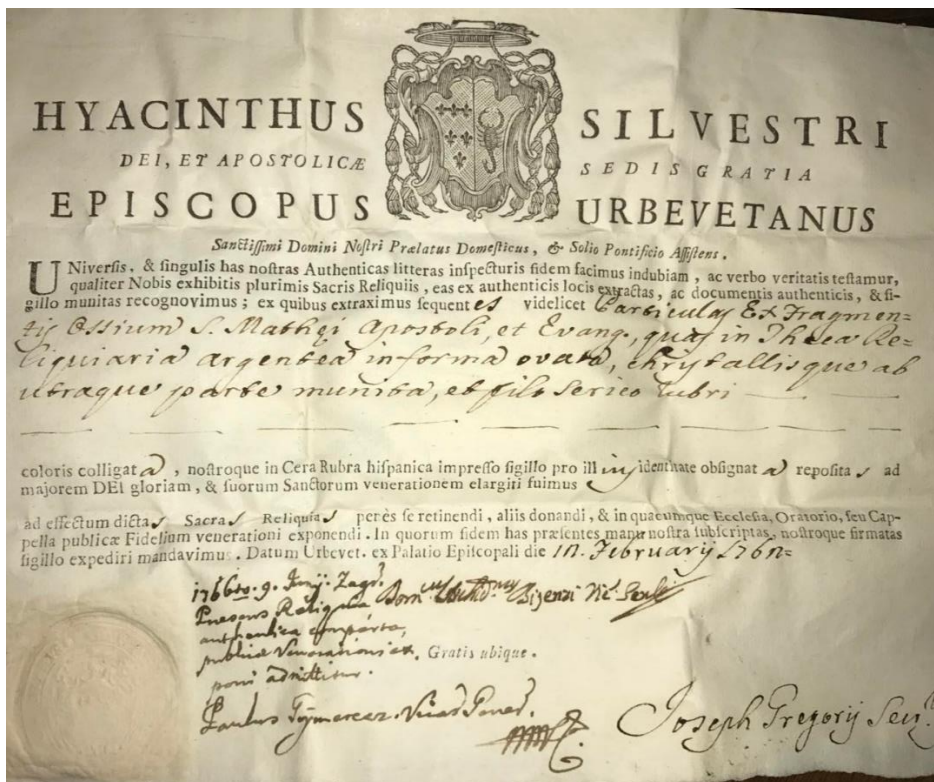 HYACINTHUS SILVESTRI
DEI, ET APOSTOLICÆ SEDIS GRATIA
EPISCOPUS URBEVETANUS
Sanctissimi Domini Nostri Prælatus Domesticus, & Solio Pontificio Assistens.
UNiversis, & singulis has nostras Authenticas litteras inspecturis fidem facimus indubiam, ac verbo veritatis testamur,
qualiter Nobis exhibitis plurimis Sacris Reliquiis, eas ex authenticis locis extractas, ac documentis authenticis, & si-
gillo munitas recognovimus; ex quibus extraximus sequentes videlicet Particulas Ex Fragmen=
tis Ossium S. Mathęi Apostoli, et Evang., quas in Theca Re=
liquiaria argentea in forma ovata, chrystallisque ab
utraque parte munita, et filo serico rubri
coloris colligata, nostroque in Cera Rubra hispanica impresso sigillo pro ill identitate obsignata repositas ad
majorem DEI gloriam, & suorum Sanctorum venerationem elargiti fuimus
ad effectum dictas Sacras Reliquias penès se retinendi, aliis donandi, & in quacumque Ecclesia, Oratorio, seu Cap-
pella publicæ Fidelium venerationi exponendi. In quorum fidem has præsentes manu nostra subscriptas, nostroque firmatas
sigillo expediri mandavimus. Datum Urbevet. ex Palatio Episcopali die February
9. Junij Zagr.
Præsens Reliquia
authentica comperta,
publicæ Venerationi ex
poni admittitur. Gratis ubique.
Paulus Vicar Gener.
Joseph Gregorij